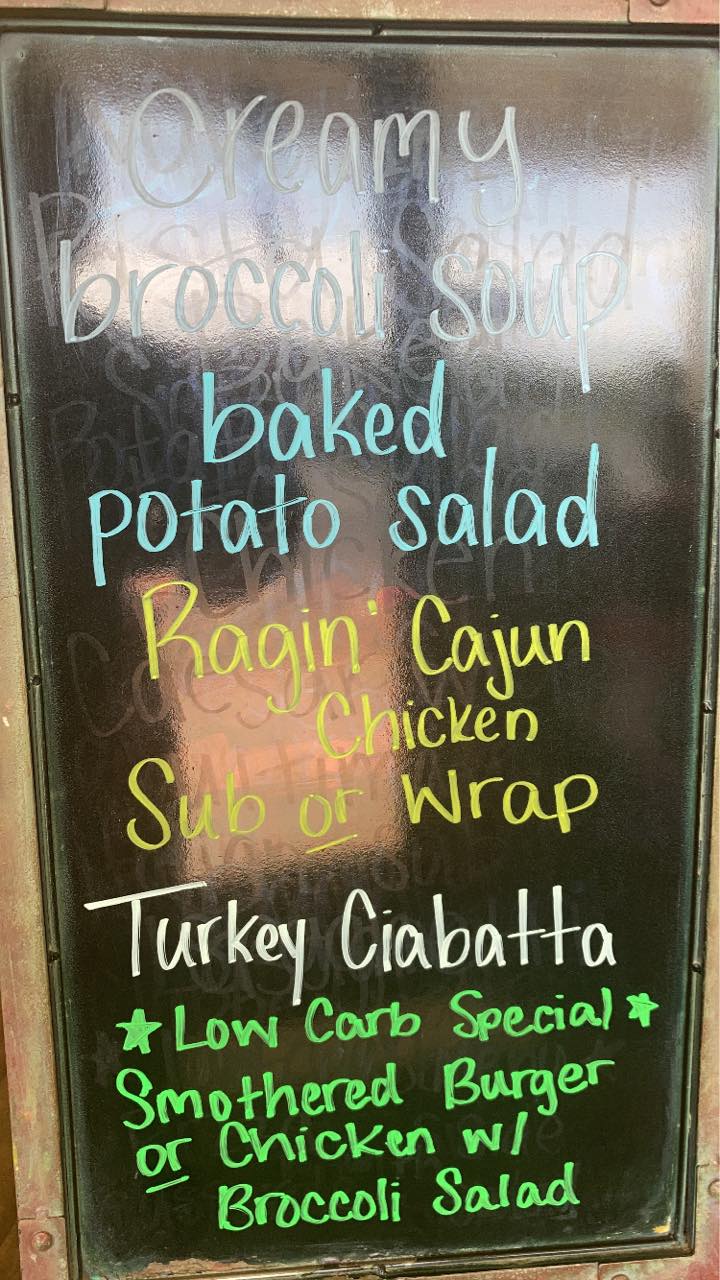 Creamy
broccoli soup
baked
potato salad
Ragin' Cajun
Chicken
Sub or Wrap
Turkey Ciabatta
★ Low Carb Special ★
Smothered Burger
or Chicken w/
Broccoli Salad